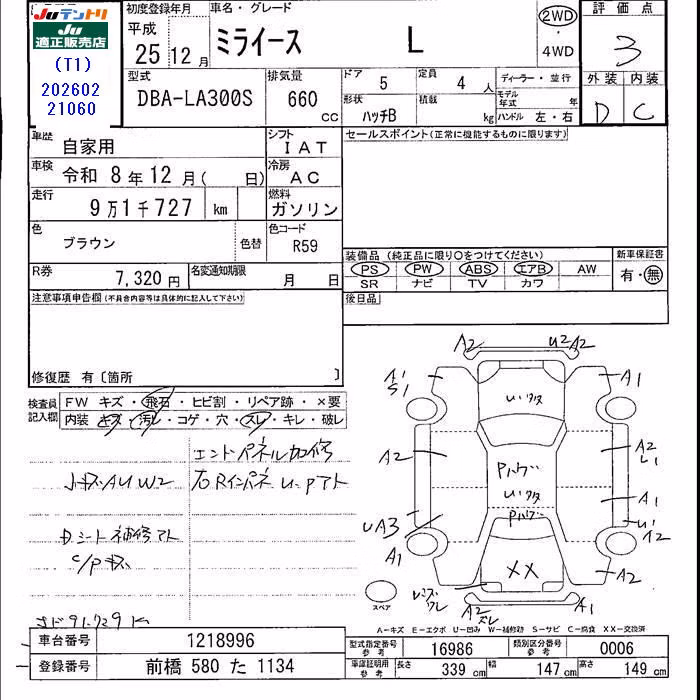 Juテントリ
Ju
適正販売店
(T1)
202602
21060
初度登録年月
平成
25 12 月
車名・グレード
ミライース L
2WD
・
4WD
評価点
3
外装 内装
D C
型式
DBA-LA300S
排気量
660
CC
ドア
5
定員
4 人
形状
ハッチB
積載
kg
ディーラー・並行
モデル年式 年
ハンドル 左・右
車歴
自家用
シフト
IAT
車検
令和 8年12月( 日)
冷房
AC
走行
9万1千727 km
燃料
ガソリン
色
ブラウン
色替
色コード
R59
R券
7,320 円
名変通知期限
月 日
セールスポイント(正常に機能するものに限ります)
装備品 (純正品に限り○をつけてください)
PS PW ABS エアB AW
SR ナビ TV カワ
新車保証書
有・無
後日品
注意事項申告欄(不具合内容等は具体的に記入して下さい)
修復歴 有〔箇所 〕
検査員
記入欄
FW キズ・飛石・ヒビ割・リペア跡・×要
内装 キズ・汚レ・コゲ・穴・スレ・キレ・破レ
エンドパネル加修
小キズ AU W2
右Rインパネ U・Pアト
D.シート補修アト
C/Pキズ
A2
U2 A2
A1
S1
A1
A2
A2
A1
UA3
A1
A2
A2
A2
スレ
A1
XX
スペア
A-キズ E-エクボ U-凹み W-補修跡 S-サビ C-腐食 XX-交換済
車台番号
1218996
登録番号
前橋 580 た 1134
型式指定番号
参考
16986
類別区分番号
参考
0006
車庫証明用
参考
長さ
339 cm
幅
147 cm
高さ
149 cm